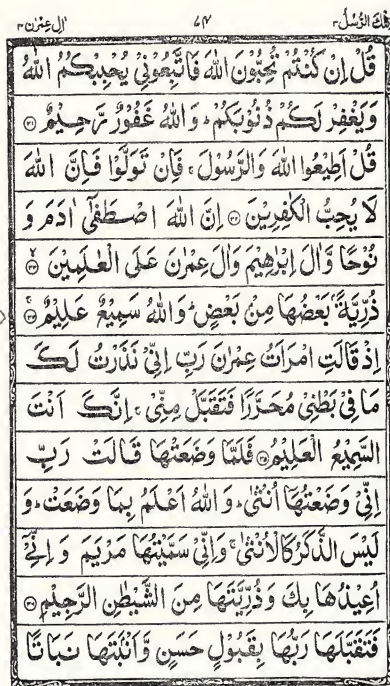 تلك الرسل ٣ ٧٤ اٰل عمرٰن ٣
قُلْ اِنْ كُنْتُمْ تُحِبُّوْنَ اللّٰهَ فَاتَّبِعُوْنِيْ يُحْبِبْكُمُ اللّٰهُ
وَيَغْفِرْ لَكُمْ ذُنُوْبَكُمْ ؕ وَاللّٰهُ غَفُوْرٌ رَّحِيْمٌ ﴿٣١﴾
قُلْ اَطِيْعُوا اللّٰهَ وَالرَّسُوْلَ ۚ فَاِنْ تَوَلَّوْا فَاِنَّ اللّٰهَ
لَا يُحِبُّ الْكٰفِرِيْنَ ﴿٣٢﴾ اِنَّ اللّٰهَ اصْطَفٰٓى اٰدَمَ وَ
نُوْحًا وَّاٰلَ اِبْرٰهِيْمَ وَاٰلَ عِمْرٰنَ عَلَى الْعٰلَمِيْنَ ﴿٣٣﴾
ذُرِّيَّةًۢ بَعْضُهَا مِنْۢ بَعْضٍ ؕ وَاللّٰهُ سَمِيْعٌ عَلِيْمٌ ﴿٣٤﴾
اِذْ قَالَتِ امْرَاَتُ عِمْرٰنَ رَبِّ اِنِّيْ نَذَرْتُ لَكَ
مَا فِيْ بَطْنِيْ مُحَرَّرًا فَتَقَبَّلْ مِنِّيْ ۚ اِنَّكَ اَنْتَ
السَّمِيْعُ الْعَلِيْمُ ﴿٣٥﴾ فَلَمَّا وَضَعَتْهَا قَالَتْ رَبِّ
اِنِّيْ وَضَعْتُهَاۤ اُنْثٰى ؕ وَاللّٰهُ اَعْلَمُ بِمَا وَضَعَتْ ؕ وَ
لَيْسَ الذَّكَرُ كَالْاُنْثٰى ۚ وَاِنِّيْ سَمَّيْتُهَا مَرْيَمَ وَ اِنِّيْۤ
اُعِيْذُهَا بِكَ وَذُرِّيَّتَهَا مِنَ الشَّيْطٰنِ الرَّجِيْمِ ﴿٣٦﴾
فَتَقَبَّلَهَا رَبُّهَا بِقَبُوْلٍ حَسَنٍ وَّاَنْۢبَتَهَا نَبَاتًا